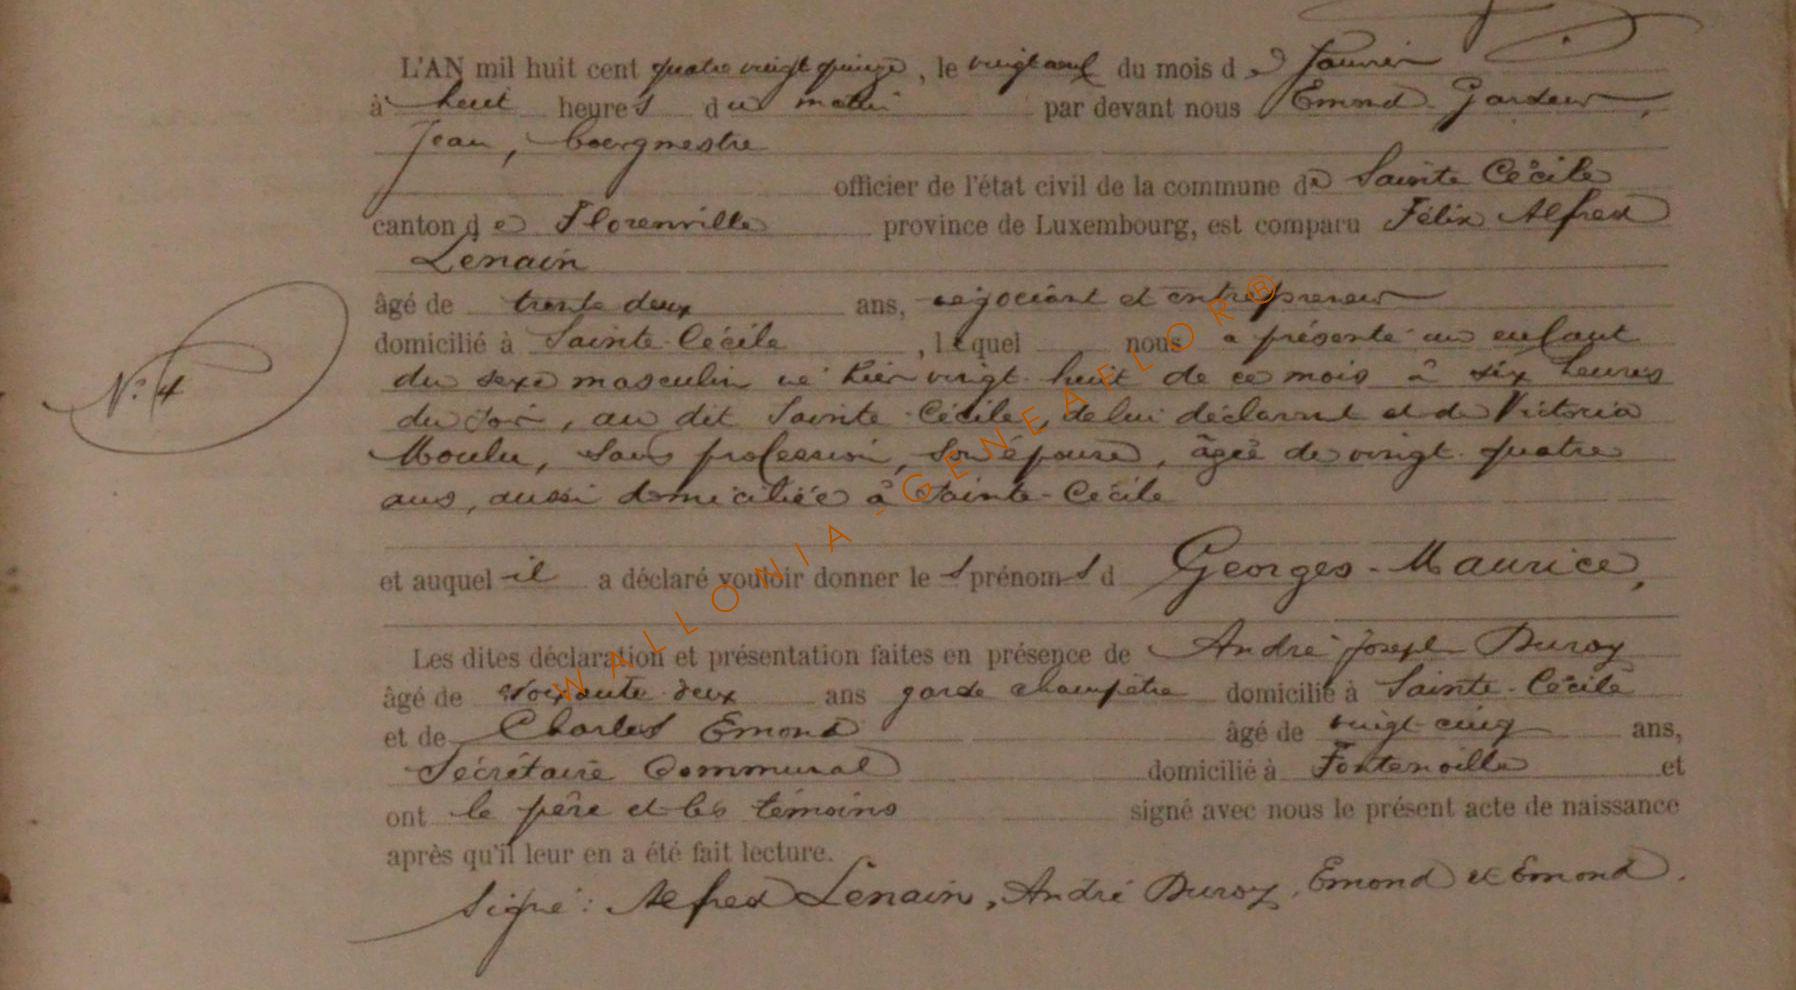 L'AN mil huit cent quatre vingt quinze, le vingt neuf du mois de Janvier
à huit heures du matin par devant nous Emond Gardeur,
Jean, bourgmestre
officier de l'état civil de la commune de Sainte Cécile
canton de Florenville province de Luxembourg, est comparu Félix Alfred
Lenain
âgé de trente deux ans, négociant et entrepreneur
domicilié à Sainte-Cécile, lequel nous a présenté un enfant
N° 4
du sexe masculin né hier vingt huit de ce mois à six heures
du soir, au dit Sainte-Cécile, de lui déclarant et de Victoria
Moulu, sans profession, son épouse, âgée de vingt-quatre
ans, aussi domiciliée à Sainte-Cécile
et auquel il a déclaré vouloir donner les prénoms d Georges-Maurice,
Les dites déclaration et présentation faites en présence de André Joseph Duroy
âgé de soixante-deux ans garde champêtre domicilié à Sainte-Cécile
et de Charles Emond âgé de vingt-cinq ans,
Sécrétaire Communal domicilié à Fontenoille et
ont le père et les témoins signé avec nous le présent acte de naissance
après qu'il leur en a été fait lecture.
Signé: Alfred Lenain, André Duroy, Emond et Emond.
WALLONIA-GENEAFLOR®